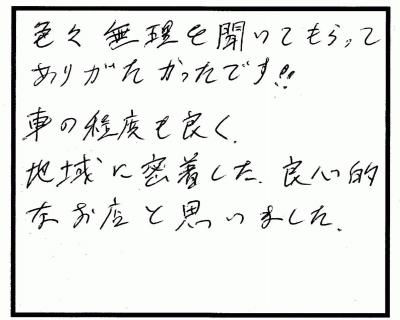 色々無理を聞いてもらって
ありがたかったです!!
車の程度も良く、
地域に密着した、良心的
なお店と思いました。